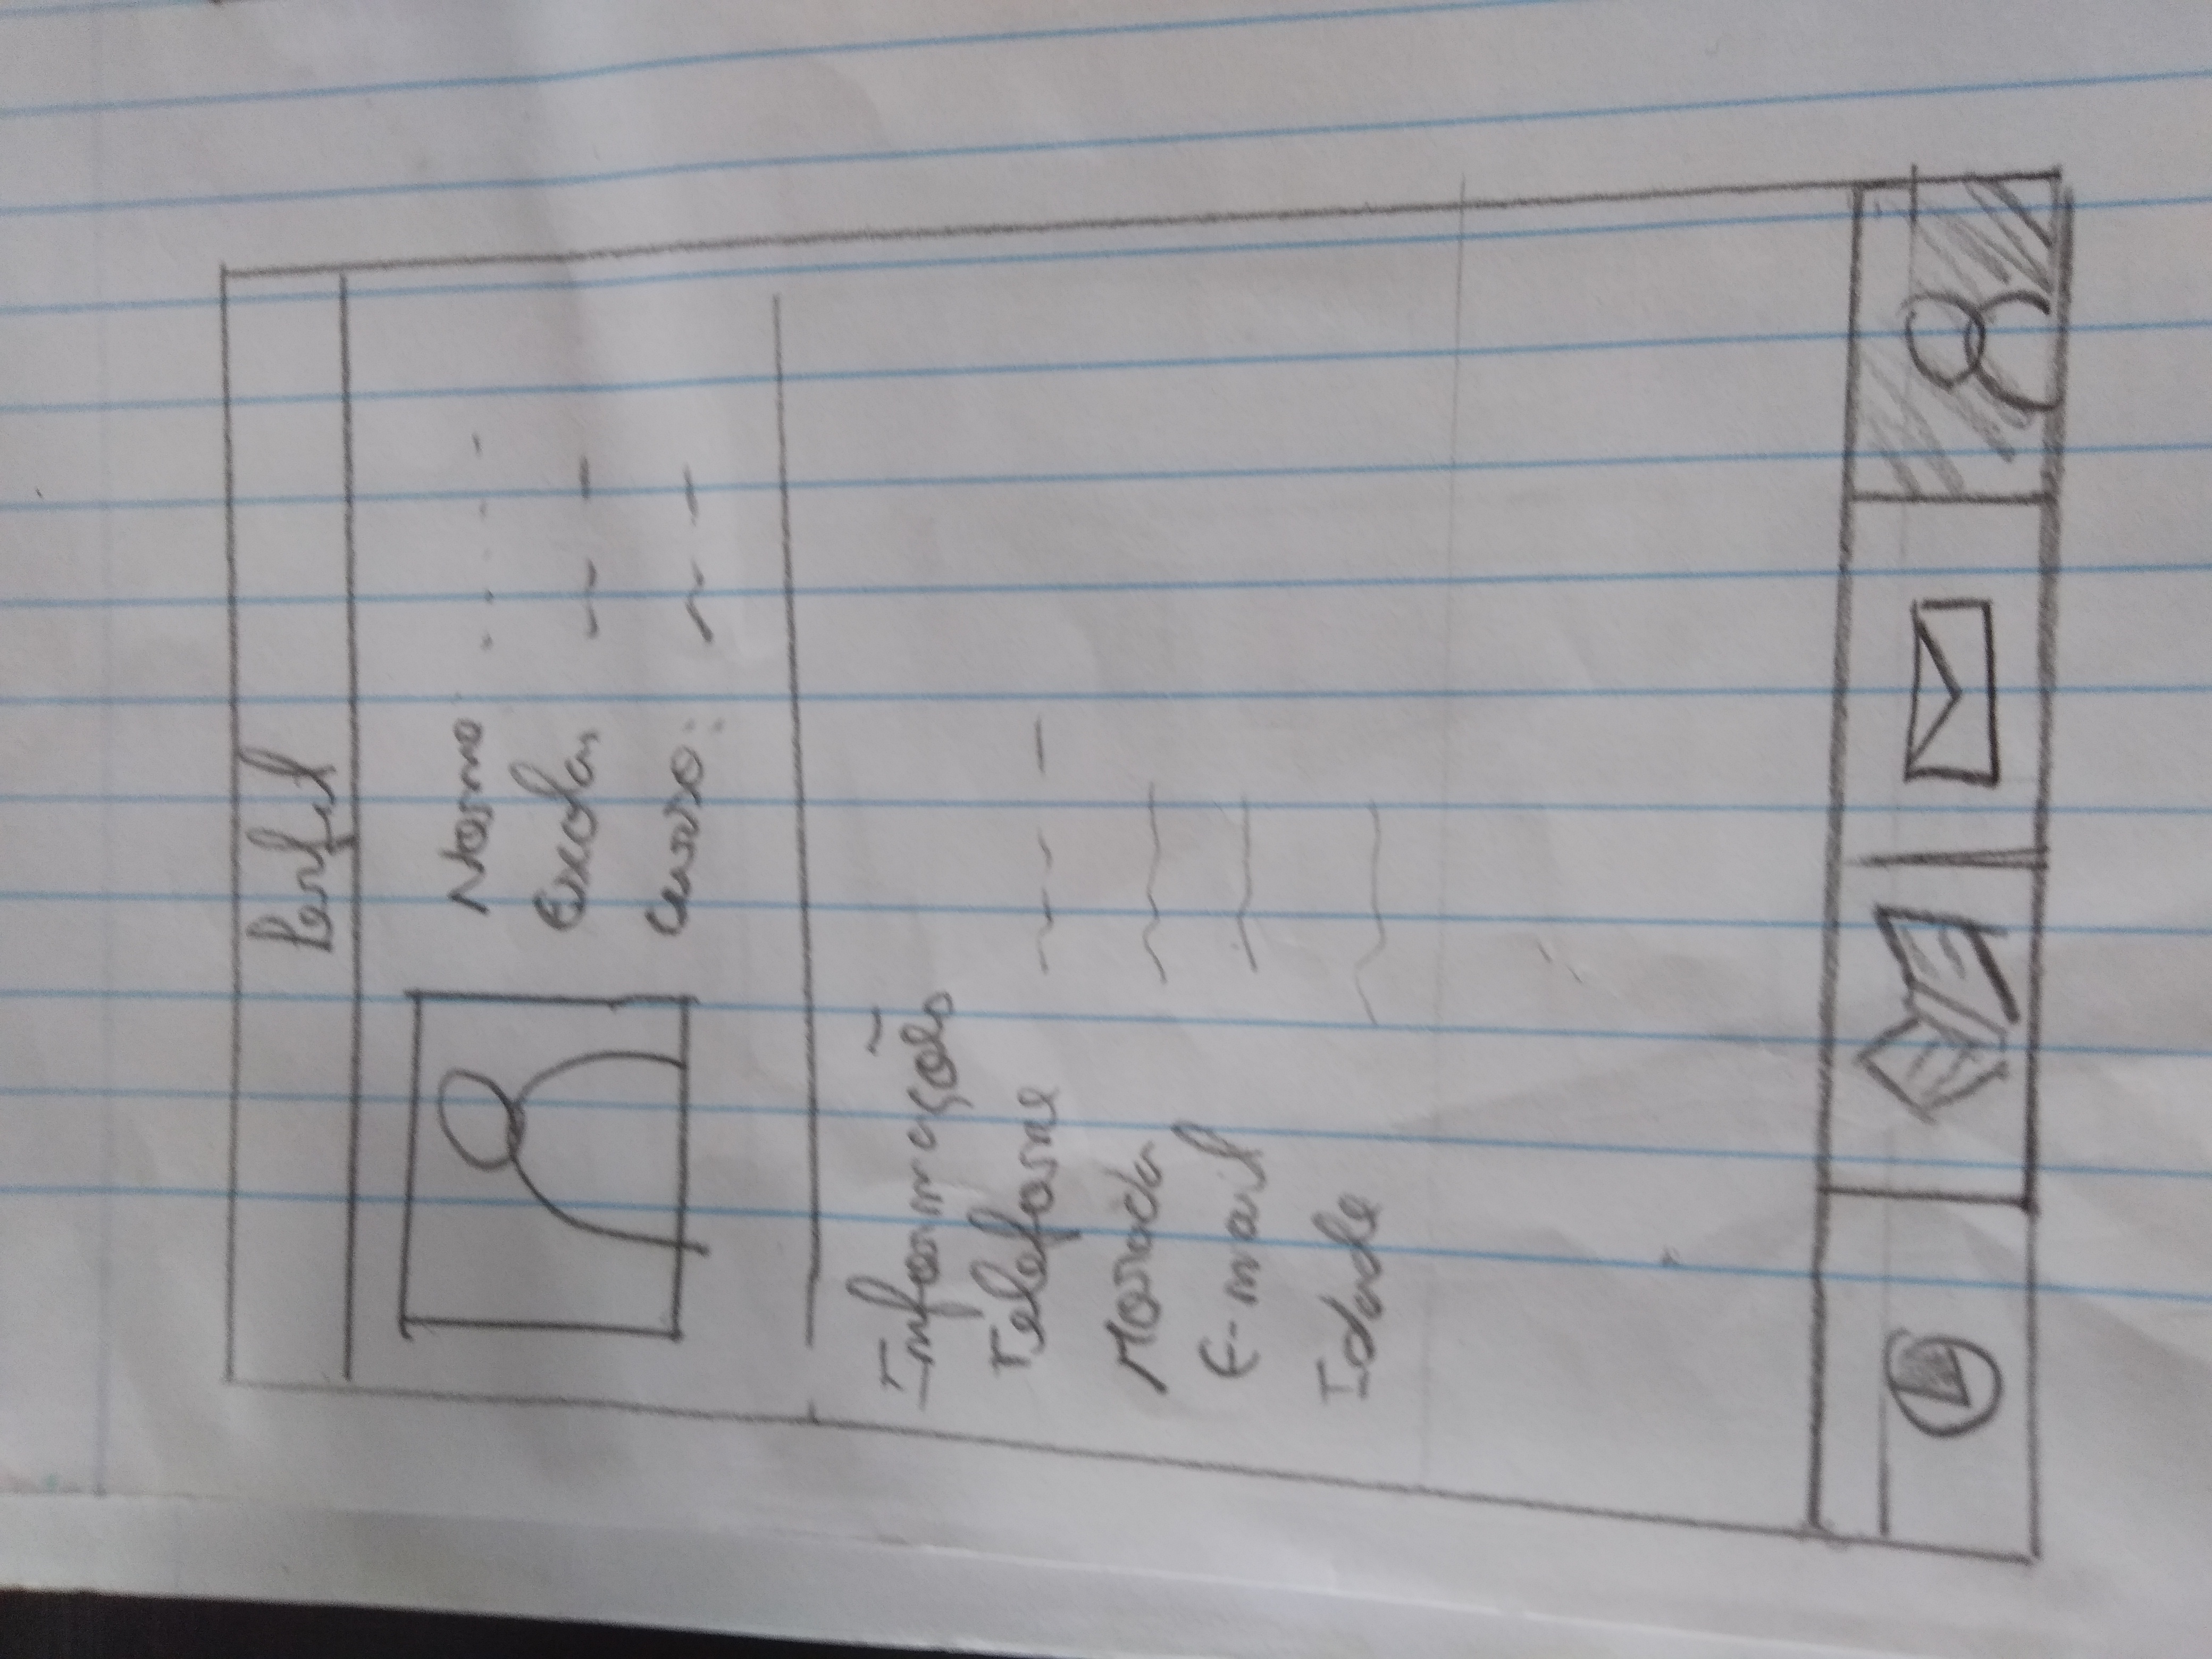 Perfil
Nome
Escola
Curso:
Informações
Telefone
Morada
E-mail
Idade